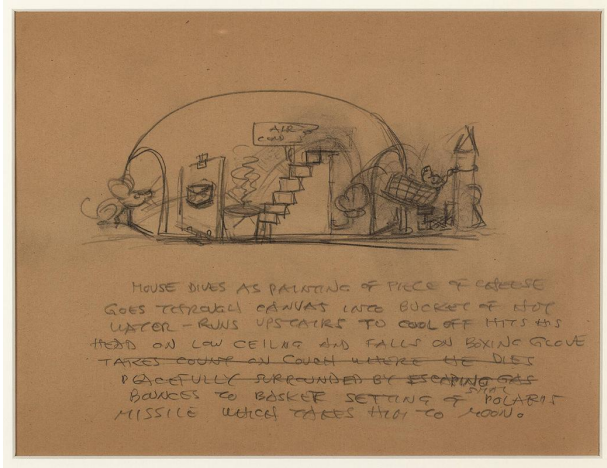 AIR
COND
MOUSE DIVES AS PAINTING OF PIECE OF CHEESE
GOES THROUGH CANVAS INTO BUCKET OF HOT
WATER - RUNS UPSTAIRS TO COOL OFF HITS HIS
HEAD ON LOW CEILING AND FALLS ON BOXING GLOVE
TAKES COUNT ON COUCH WHERE HE DIES
PEACEFULLY SURROUNDED BY ESCAPING GAS
BOUNCES TO BASKET SETTING OF POLARIS
MISSILE WHICH TAKES HIM TO MOON.